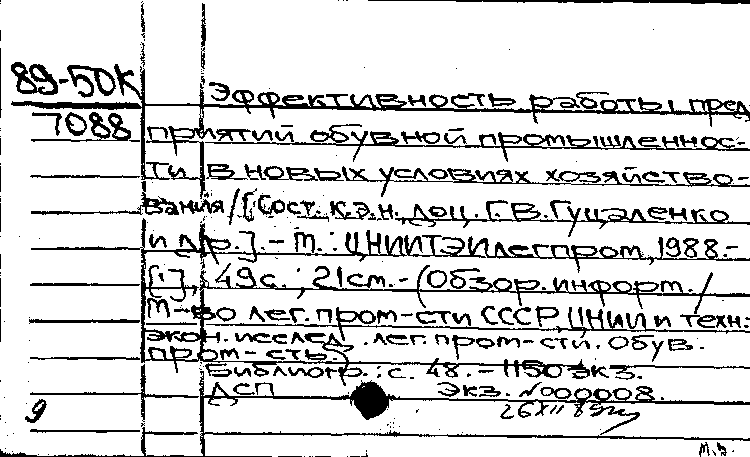 89-50К
7088
Эффективность работы пред
приятий обувной промышленнос-
ти в новых условиях хозяйство-
вания/[Сост. к.э.н., доц. Г.В. Гуцаленко
и др.]. - М.: ЦНИИТЭИлегпром, 1988.-
[1], 49с.; 21см.-(Обзор. информ./
М-во лег. пром-сти СССР, ЦНИИ и техн.-
экон. исслед. лег. пром-сти. Обув.
пром-сть.)
Библиогр.: с. 48. - 1150 экз.
ДСП Экз. №000008.
26 XII 89
9